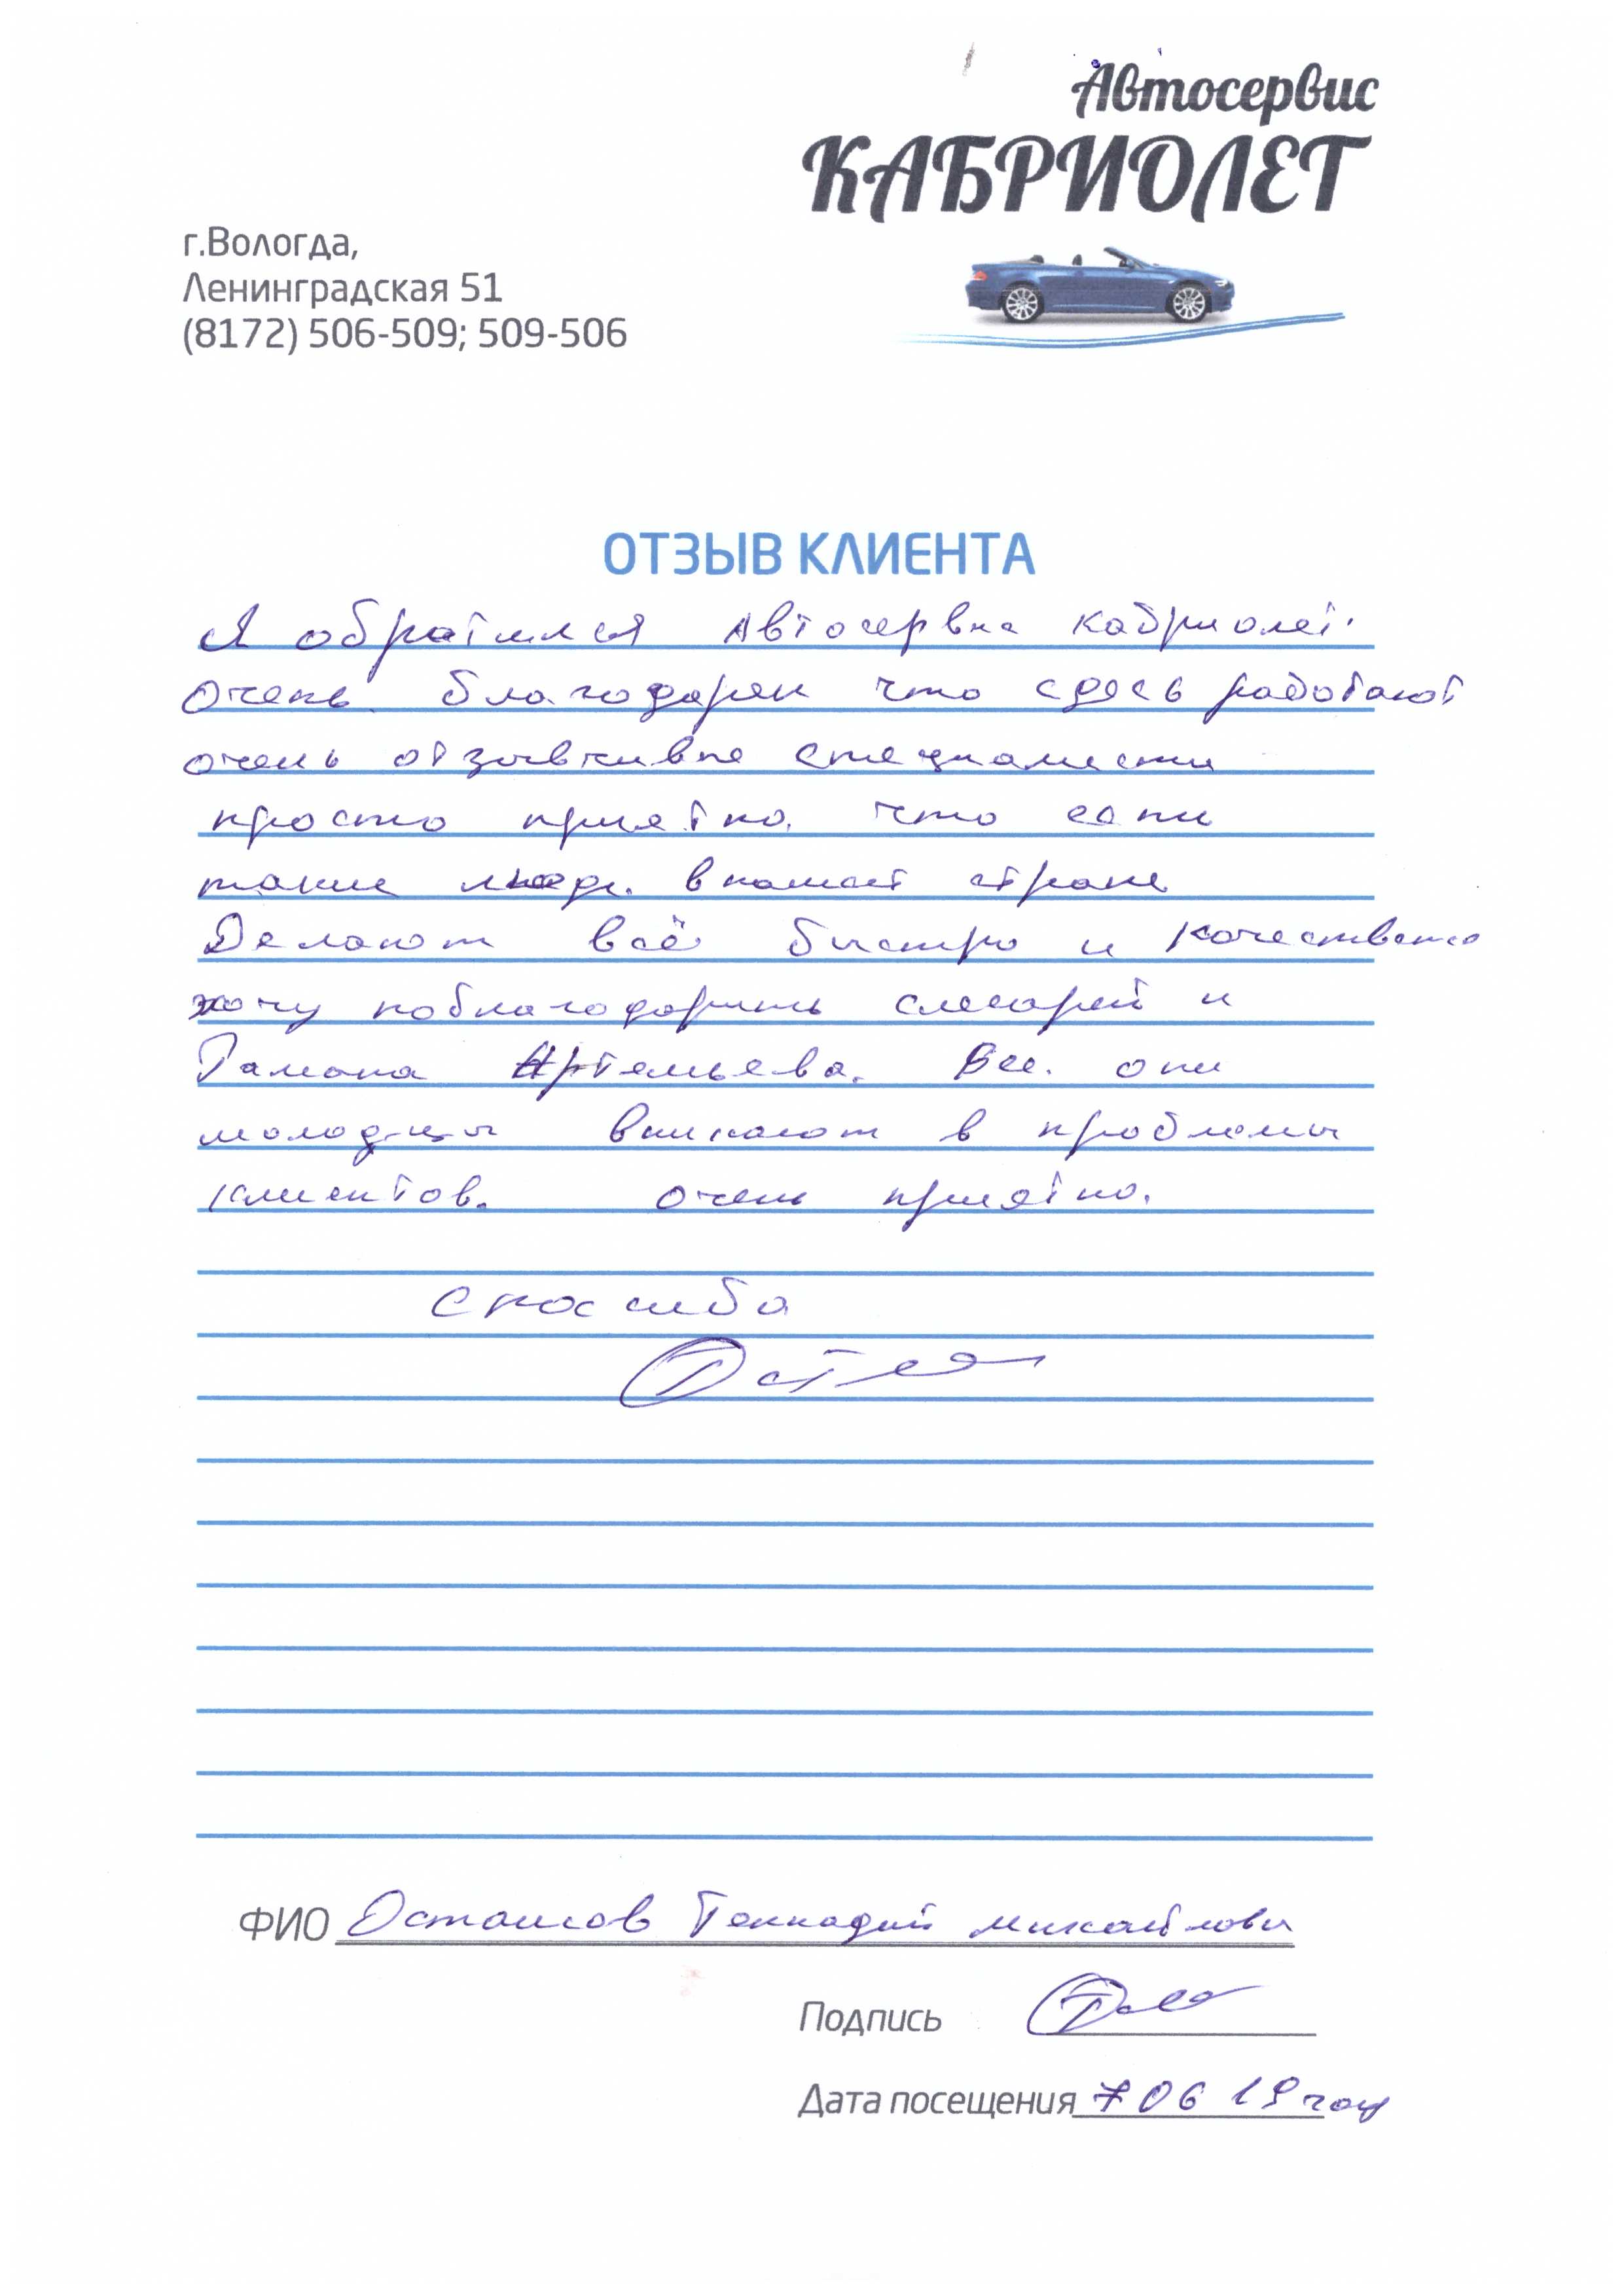 Автосервис
КАБРИОЛЕТ
г.Вологда,
Ленинградская 51
(8172) 506-509; 509-506
ОТЗЫВ КЛИЕНТА
Я обратился Автосервис кабриолет.
Очень благодарен что сдесь работают
очень отзывчивые специалисты
просто приятно что есть
такие люди в нашей стране
Делают всё быстро и качественно
хочу поблагодарить слесарей и
Романа Артемьева. Все они
молодцы вникают в проблемы
клиентов. очень приятно.
Спасибо
ФИО Осташов Геннадий михайлови
Подпись
Дата посещения 7 06 19 год